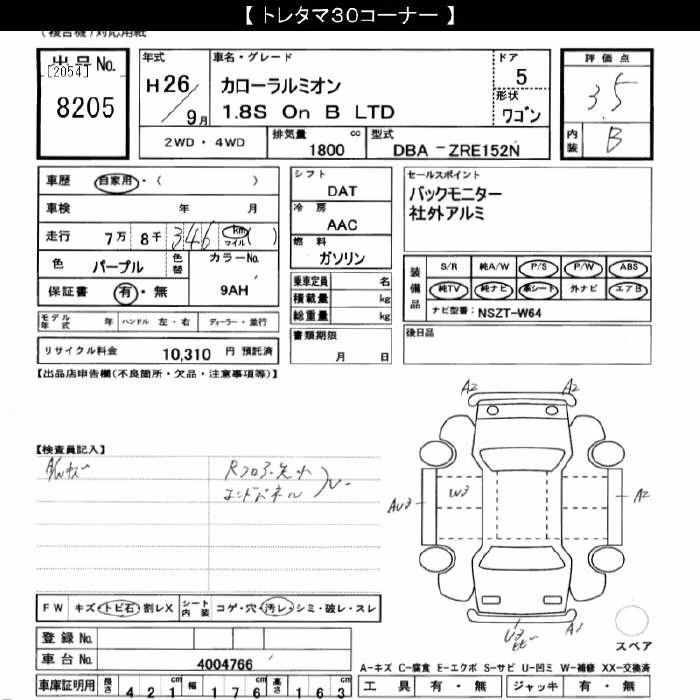 【 トレタマ30コーナー 】
(複合機)対応用紙
出品No.
[2054]
8205
年式
H26/9月
車名・グレード
カローラルミオン
1.8S On B LTD
ドア
5
形状
ワゴン
評価点
3.5
内装
B
2WD・4WD
排気量
1800 cc
型式
DBA -ZRE152N
車歴 自家用・( )
車検 年 月
走行 7万 8千 346 km マイル ( )
色 パープル 色替
カラーNo.
9AH
保証書 有・無
モデル年式 年 ハンドル 左・右 ディーラー・並行
リサイクル料金 10,310 円 預託済
シフト
DAT
冷房
AAC
燃料
ガソリン
乗車定員 名
積載量 kg
総重量 kg
書類期限
月 日
セールスポイント
バックモニター
社外アルミ
装備品
S/R 純A/W P/S P/W ABS
純TV 純ナビ 革シート 外ナビ エアB
ナビ型番: NSZT-W64
後日品
【出品店申告欄(不良箇所・欠品・注意事項等)】
【検査員記入】
Rフロア先小
エンドパネル
A2 A2
AU3 W3 A2
U3 A1
スペア
FW キズ・トビ石・割レX
シート内装 コゲ・穴・汚レ・シミ・破レ・スレ
登録No.
車台No. 4004766
車庫証明用 長さ 421cm 幅 176cm 高さ 163cm
A-キズ C-腐食 E-エクボ S-サビ U-凹ミ W-補修 XX-交換済
工具 有・無 ジャッキ 有・無